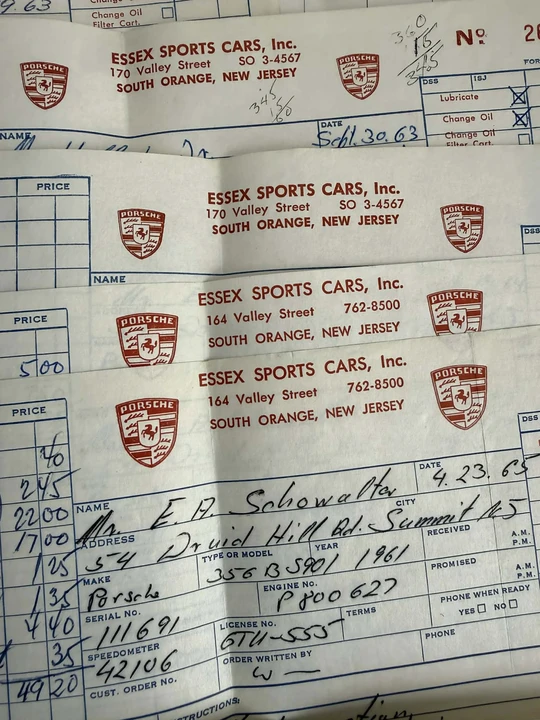 9.63
Change Oil
Filter Cart.
ESSEX SPORTS CARS, Inc.
170 Valley Street SO 3-4567
SOUTH ORANGE, NEW JERSEY
PORSCHE
PORSCHE
360
15
345
345
15
No. 26
FOR
DSS ISJ
Lubricate
Change Oil
Change Oil
Filter Cart.
NAME
DATE
30.63
PRICE
ESSEX SPORTS CARS, Inc.
170 Valley Street SO 3-4567
SOUTH ORANGE, NEW JERSEY
PORSCHE
PORSCHE
DSS
NAME
PRICE
5 00
ESSEX SPORTS CARS, Inc.
164 Valley Street 762-8500
SOUTH ORANGE, NEW JERSEY
PORSCHE
PORSCHE
PRICE
40
2 45
22 00
17 00
1 25
1 35
4 40
35
49 20
ESSEX SPORTS CARS, Inc.
164 Valley Street 762-8500
SOUTH ORANGE, NEW JERSEY
PORSCHE
PORSCHE
DSS
DATE
4.23.65
NAME
Mr. E. A. Schowalter
ADDRESS CITY
54 Druid Hill Rd. Summit NJ
MAKE TYPE OR MODEL YEAR RECEIVED A.M. P.M.
Porsche 356 B 5901 1961
SERIAL NO. ENGINE NO. PROMISED A.M. P.M.
111691 P800627
SPEEDOMETER LICENSE NO. TERMS PHONE WHEN READY
42106 GTU-555 YES NO
CUST. ORDER NO. ORDER WRITTEN BY PHONE
W
INSTRUCTIONS: